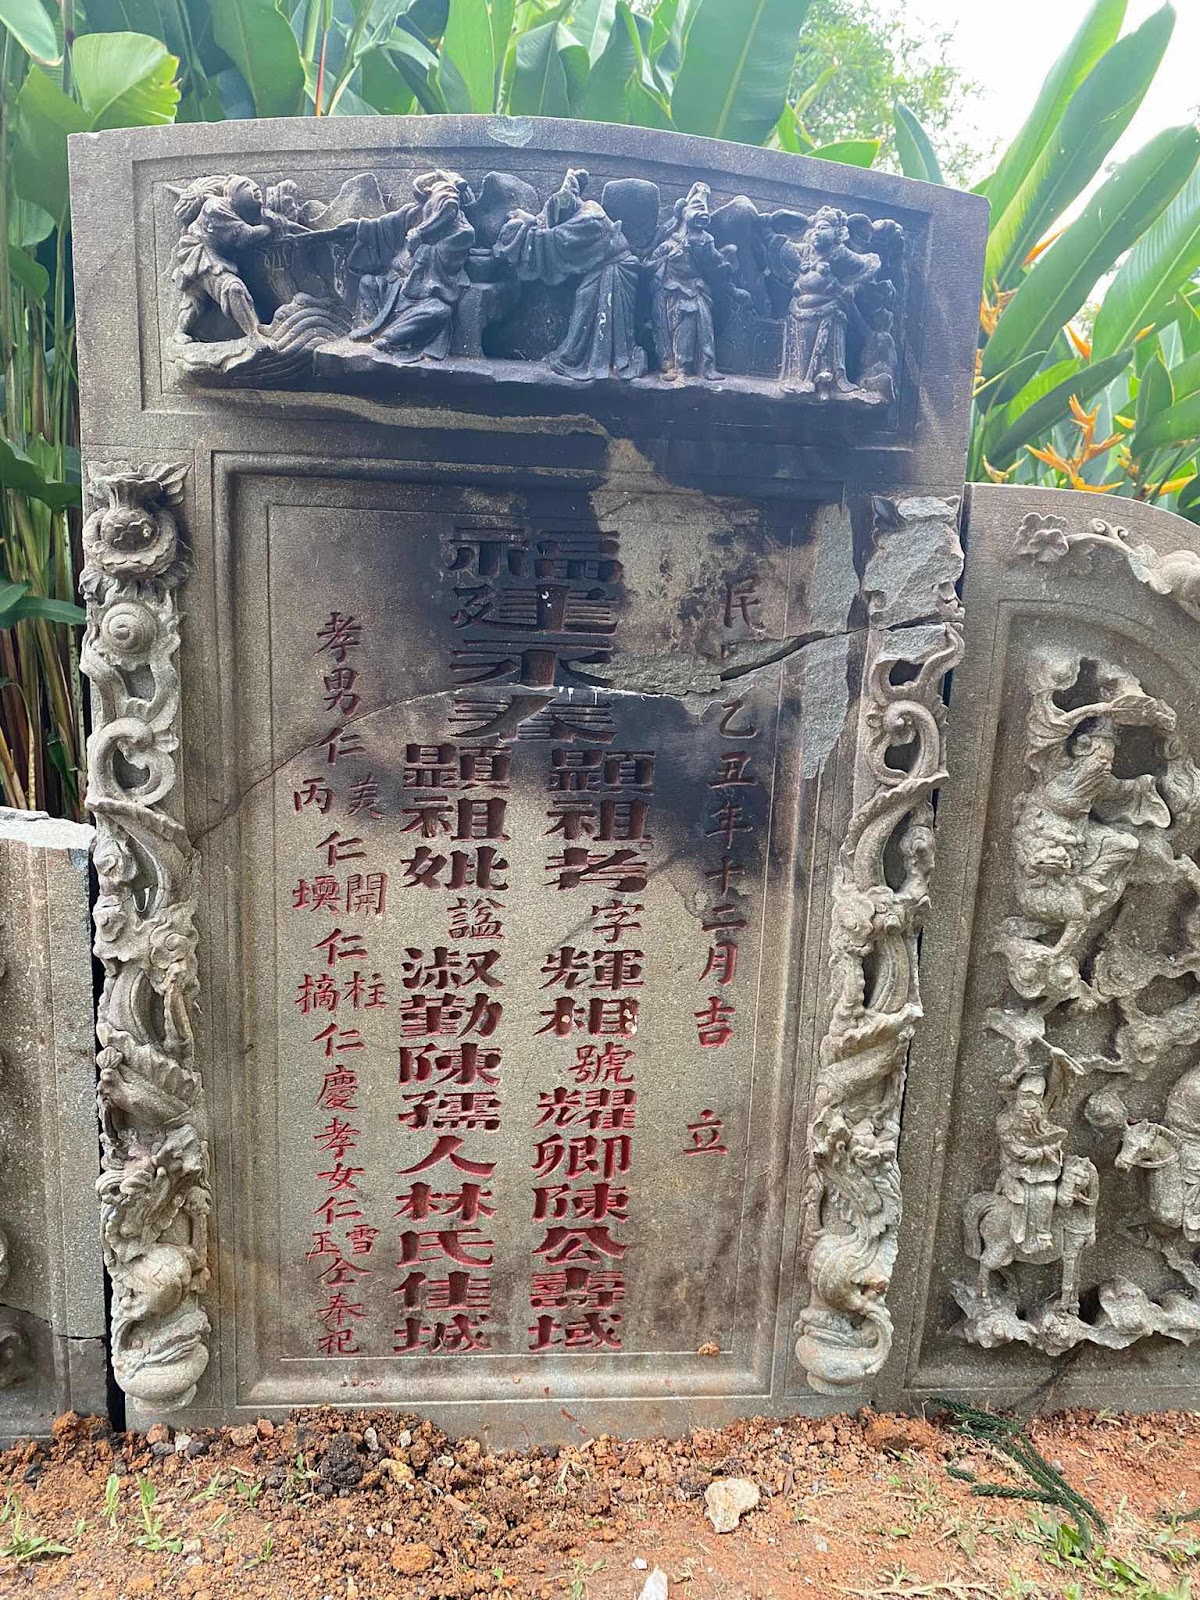 民 乙丑年十二月吉 立
福建永春
顯祖考字輝相號耀卿陳公壽域
顯祖妣諡淑勤陳孺人林氏佳城
孝男仁美丙仁開墺仁柱摘仁慶孝女仁雪玉仝奉祀